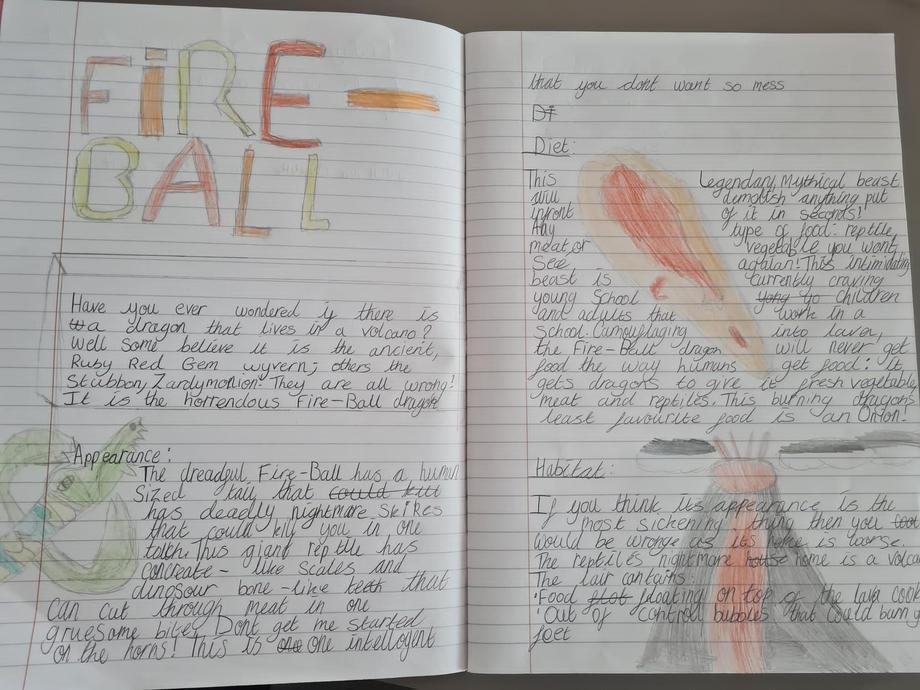 FIRE-
BALL
Have you ever wondered if there is
a dragon that lives in a volcano?
Well some believe it is the ancient,
Ruby Red Gem wyvern; others the
Stubbon, Zardymonion. They are all wrong!
It is the horrendous Fire-Ball dragon
Appearance:
The dreadful Fire-Ball has a human
Sized tail that could kill
has deadly nightmare skikes
that could kill you in one
toch. This giant reptile has
concreate- like scales and
dinosour bone-like teeth that
can cut through meat in one
gruesome bite. Dont get me started
on the horns! This is one one intellogent
that you dont want so mess
Di
Diet:
This Legendary, Mythical beast
will demolish anything put
infront of it in seconds!
Any type of food: reptile,
meat, or vegetable you wont
See agaian! This intimidating
beast is currently craving
young School yong yo children
and adults that work in a
School. Camouflaging into laver,
the Fire-Ball dragon will never get
food the way humans get food: it
gets dragons to give it fresh vegetable,
meat and reptiles. This burning dragons
least favourite food is an Onion!
Habitat:
If you think its appearance is the
most sickening thing then you
would be wronge as its home is worse.
The reptiles nightmare house home is a volca
The lair contains:
'Food flot floating on top of the lava
'Out of control bubbles that could burn
feet